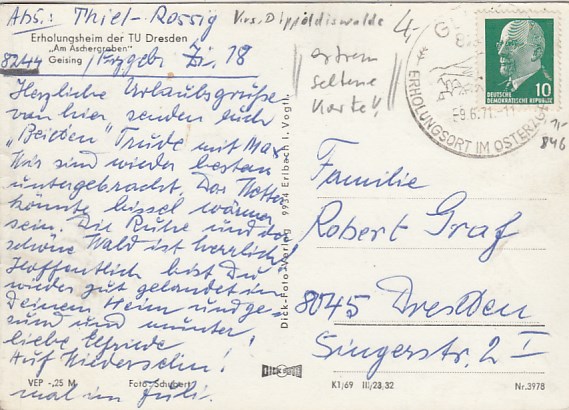 Abs.: Thiel-Rossig
Krs. Dippoldiswalde
Erholungsheim der TU Dresden
„Am Aschergraben"
8244 Geising / Erzgeb. Zi. 18
extrem
seltene
Karte!!
4,-
ERHOLUNGSORT IM OSTERZGE
-9.6.71.-11
DEUTSCHE
DEMOKRATISCHE REPUBLIK
10
846
Herzliche Urlaubsgrüße
von hier senden Euch
„Beiden" Trude mit Max
Wir sind wieder bestens
untergebracht. Das Wetter
könnte bissel wärmer
sein. Die Ruhe und der
schöne Wald ist herrlich!
Hoffentlich bist Du
wieder gut gelandet in
Deinem Heim und ge-
sund und munter
liebe Elfriede!
Auf Wiedersehn!
mal im Juli.
Familie
Robert Graf
8045 Dresden
Singerstr. 2 I
Dick-Foto-Verlag 9934 Erlbach i. Vogtl.
VEP -,25 M
Foto-Schubert
DICK
K1/69 III/23,32
Nr. 3978